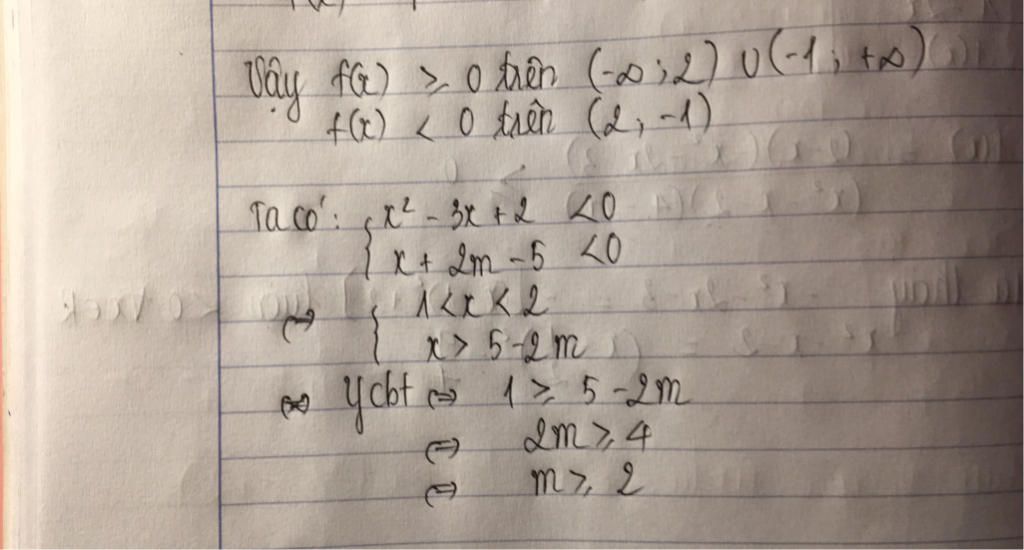 Vậy f(x) ≥ 0 trên (-∞; 2) ∪ (-1; +∞)
f(x) < 0 trên (2; -1)
Ta có: { x² - 3x + 2 < 0
x + 2m - 5 < 0
⇔ { 1 < x < 2
x > 5 - 2m
⇔ ycbt ⇔ 1 ≥ 5 - 2m
⇔ 2m ≥ 4
⇔ m ≥ 2